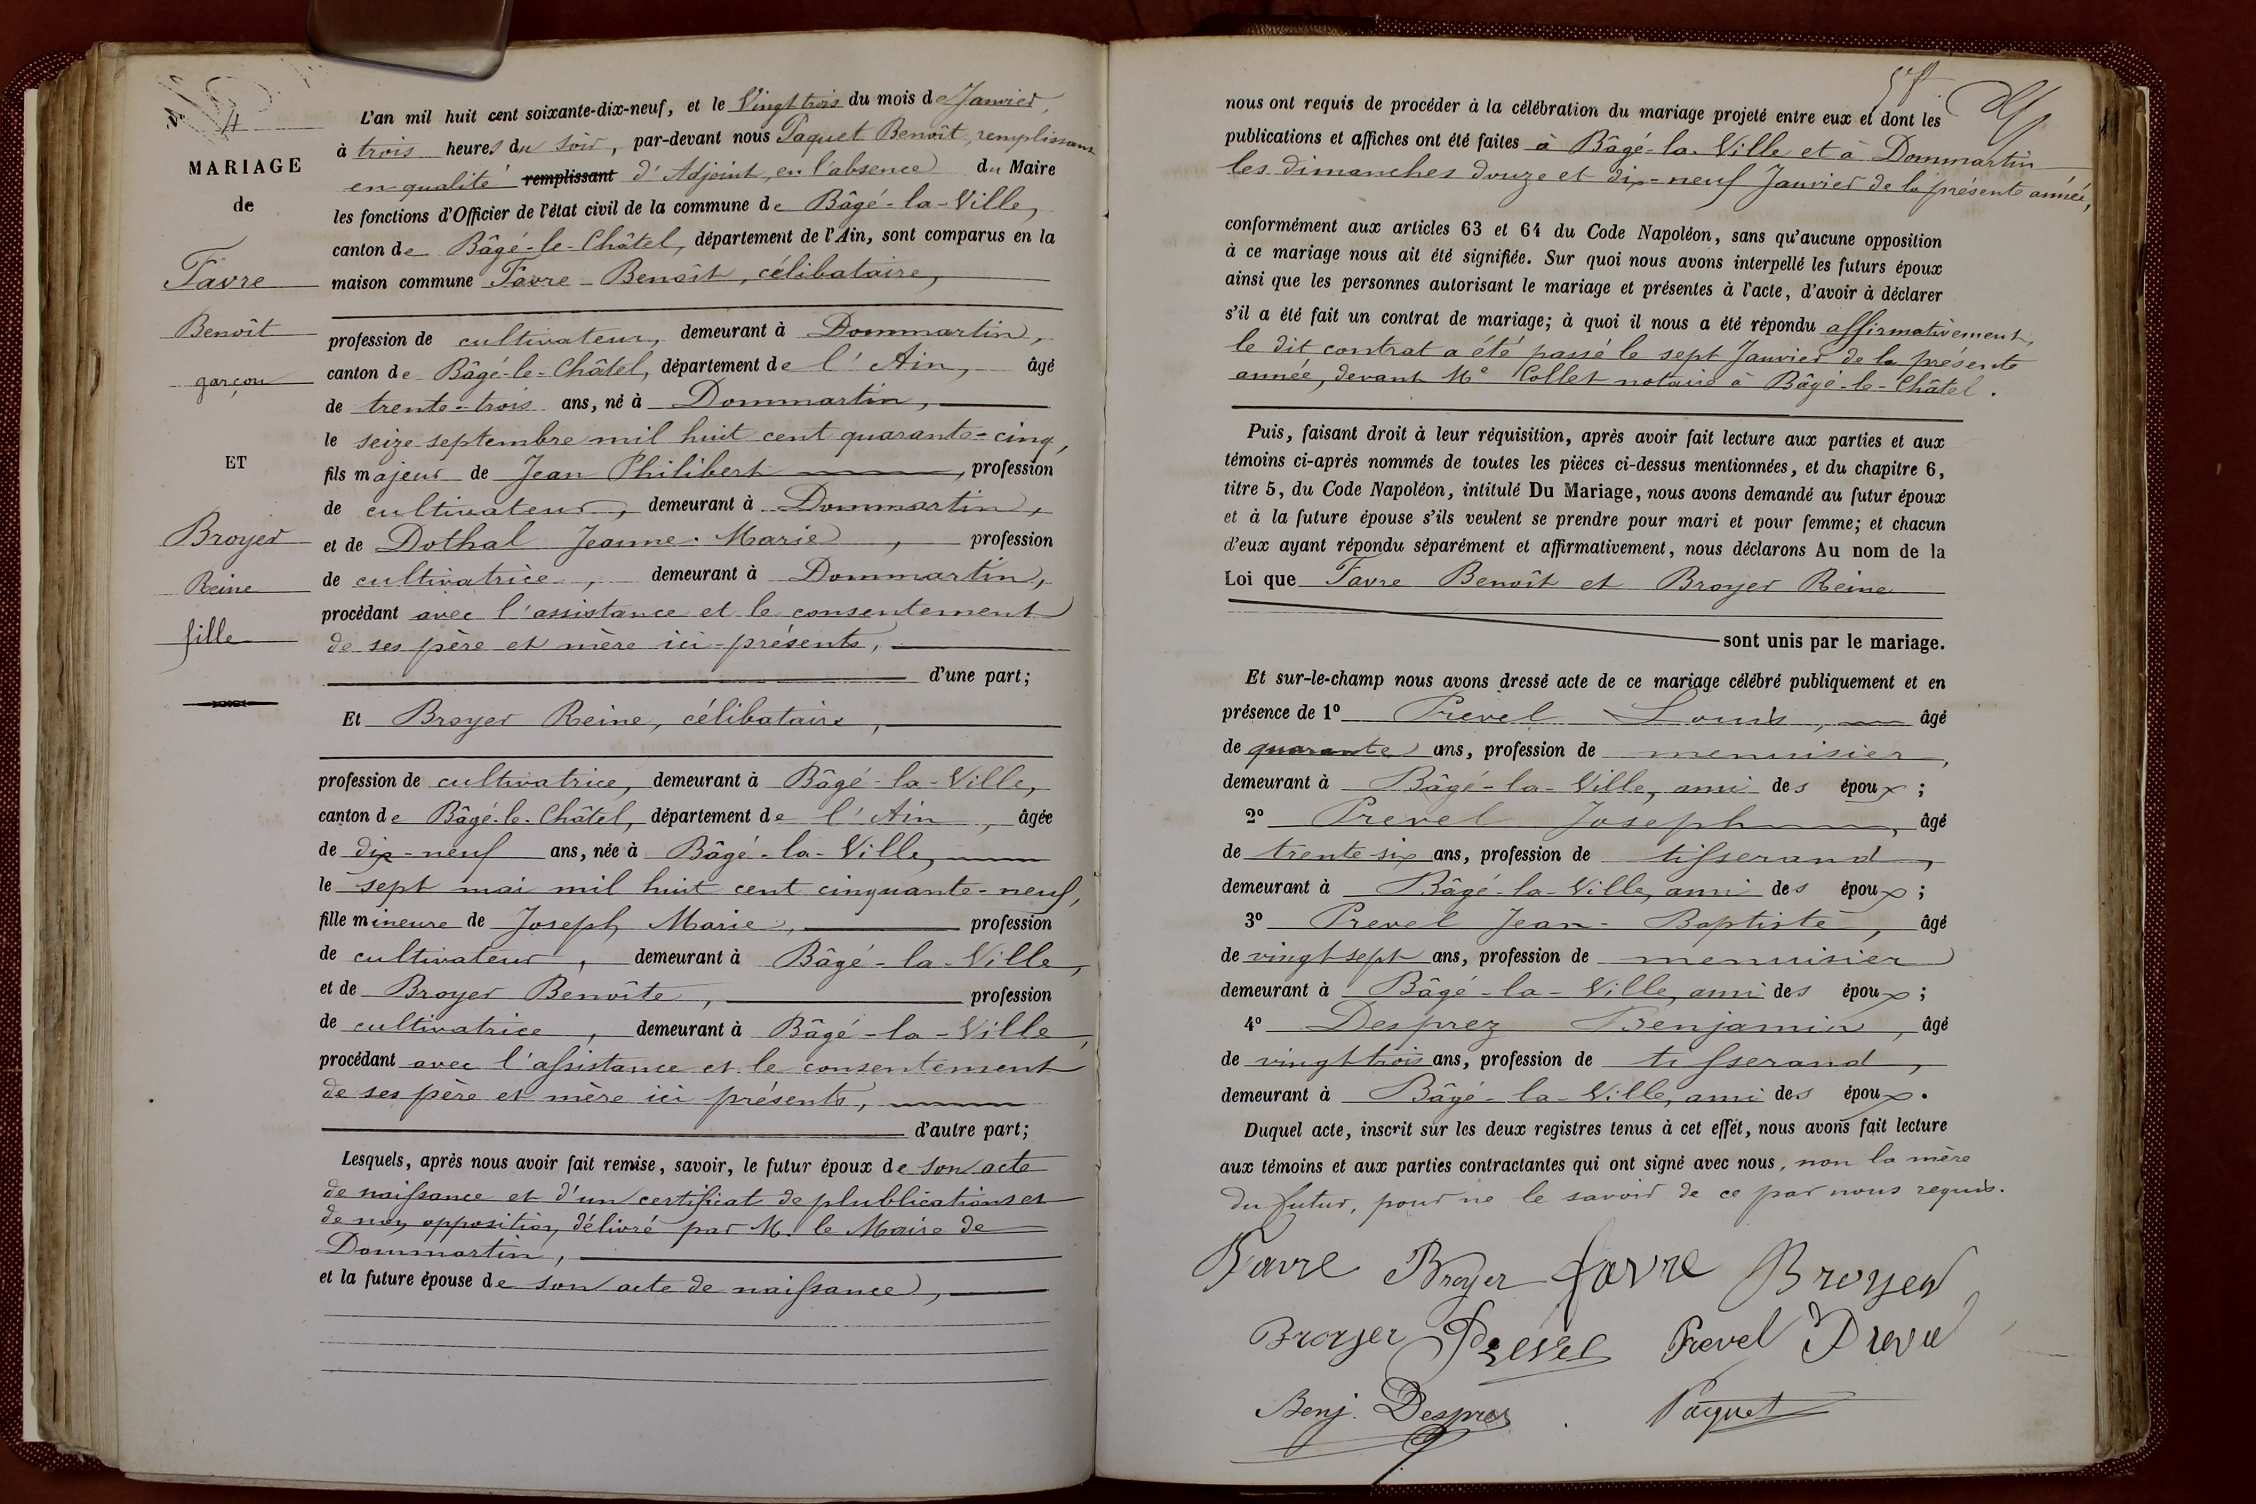 4
MARIAGE
de
Favre
Benoît
garçon
ET
Broyer
Reine
fille
L'an mil huit cent soixante-dix-neuf, et le Vingt trois du mois de Janvier,
à trois heures du soir, par-devant nous Paquet Benoît, remplissant
en qualité remplissant d'Adjoint, en l'absence du Maire
les fonctions d'Officier de l'état civil de la commune de Bâgé-la-Ville,
canton de Bâgé-le-Châtel, département de l'Ain, sont comparus en la
maison commune Favre Benoît, célibataire,
profession de cultivateur, demeurant à Dommartin,
canton de Bâgé-le-Châtel, département de l'Ain, âgé
de trente-trois ans, né à Dommartin,
le seize septembre mil huit cent quarante-cinq,
fils majeur de Jean Philibert, profession
de cultivateur, demeurant à Dommartin,
et de Dothal Jeanne-Marie, profession
de cultivatrice, demeurant à Dommartin,
procédant avec l'assistance et le consentement
de ses père et mère ici-présents,
d'une part;
Et Broyer Reine, célibataire,
profession de cultivatrice, demeurant à Bâgé-la-Ville,
canton de Bâgé-le-Châtel, département de l'Ain, âgée
de dix-neuf ans, née à Bâgé-la-Ville,
le sept mai mil huit cent cinquante-neuf,
fille mineure de Joseph Marie, profession
de cultivateur, demeurant à Bâgé-la-Ville,
et de Broyer Benoîte, profession
de cultivatrice, demeurant à Bâgé-la-Ville,
procédant avec l'assistance et le consentement
de ses père et mère ici présents,
d'autre part;
Lesquels, après nous avoir fait remise, savoir, le futur époux de son acte
de naissance et d'un certificat de plublications et
de non opposition, délivré par M. le Maire de
Dommartin,
et la future épouse de son acte de naissance,
nous ont requis de procéder à la célébration du mariage projeté entre eux et dont les
publications et affiches ont été faites à Bâgé-la-Ville et à Dommartin
les dimanches douze et dix-neuf Janvier de la présente année,
conformément aux articles 63 et 64 du Code Napoléon, sans qu'aucune opposition
à ce mariage nous ait été signifiée. Sur quoi nous avons interpellé les futurs époux
ainsi que les personnes autorisant le mariage et présentes à l'acte, d'avoir à déclarer
s'il a été fait un contrat de mariage; à quoi il nous a été répondu affirmativement,
le dit contrat a été passé le sept Janvier de la présente
année, devant Me Collet notaire à Bâgé-le-Châtel.
Puis, faisant droit à leur réquisition, après avoir fait lecture aux parties et aux
témoins ci-après nommés de toutes les pièces ci-dessus mentionnées, et du chapitre 6,
titre 5, du Code Napoléon, intitulé Du Mariage, nous avons demandé au futur époux
et à la future épouse s'ils veulent se prendre pour mari et pour femme; et chacun
d'eux ayant répondu séparément et affirmativement, nous déclarons Au nom de la
Loi que Favre Benoît et Broyer Reine
sont unis par le mariage.
Et sur-le-champ nous avons dressé acte de ce mariage célébré publiquement et en
présence de 1º Prevel Louis, âgé
de quarante ans, profession de menuisier,
demeurant à Bâgé-la-Ville, ami des époux;
2º Prevel Joseph, âgé
de trente-six ans, profession de tisserand,
demeurant à Bâgé-la-Ville, ami des époux;
3º Prevel Jean-Baptiste, âgé
de vingt-sept ans, profession de menuisier
demeurant à Bâgé-la-Ville, ami des époux;
4º Desprez Benjamin, âgé
de vingt trois ans, profession de tisserand,
demeurant à Bâgé-la-Ville, ami des époux.
Duquel acte, inscrit sur les deux registres tenus à cet effét, nous avons fait lecture
aux témoins et aux parties contractantes qui ont signé avec nous, non la mère
du futur, pour ne le savoir de ce par nous requis.
Favre Broyer favre Broyer
Broyer Prevel Prevel Prevel
Benj. Desprez Paquet